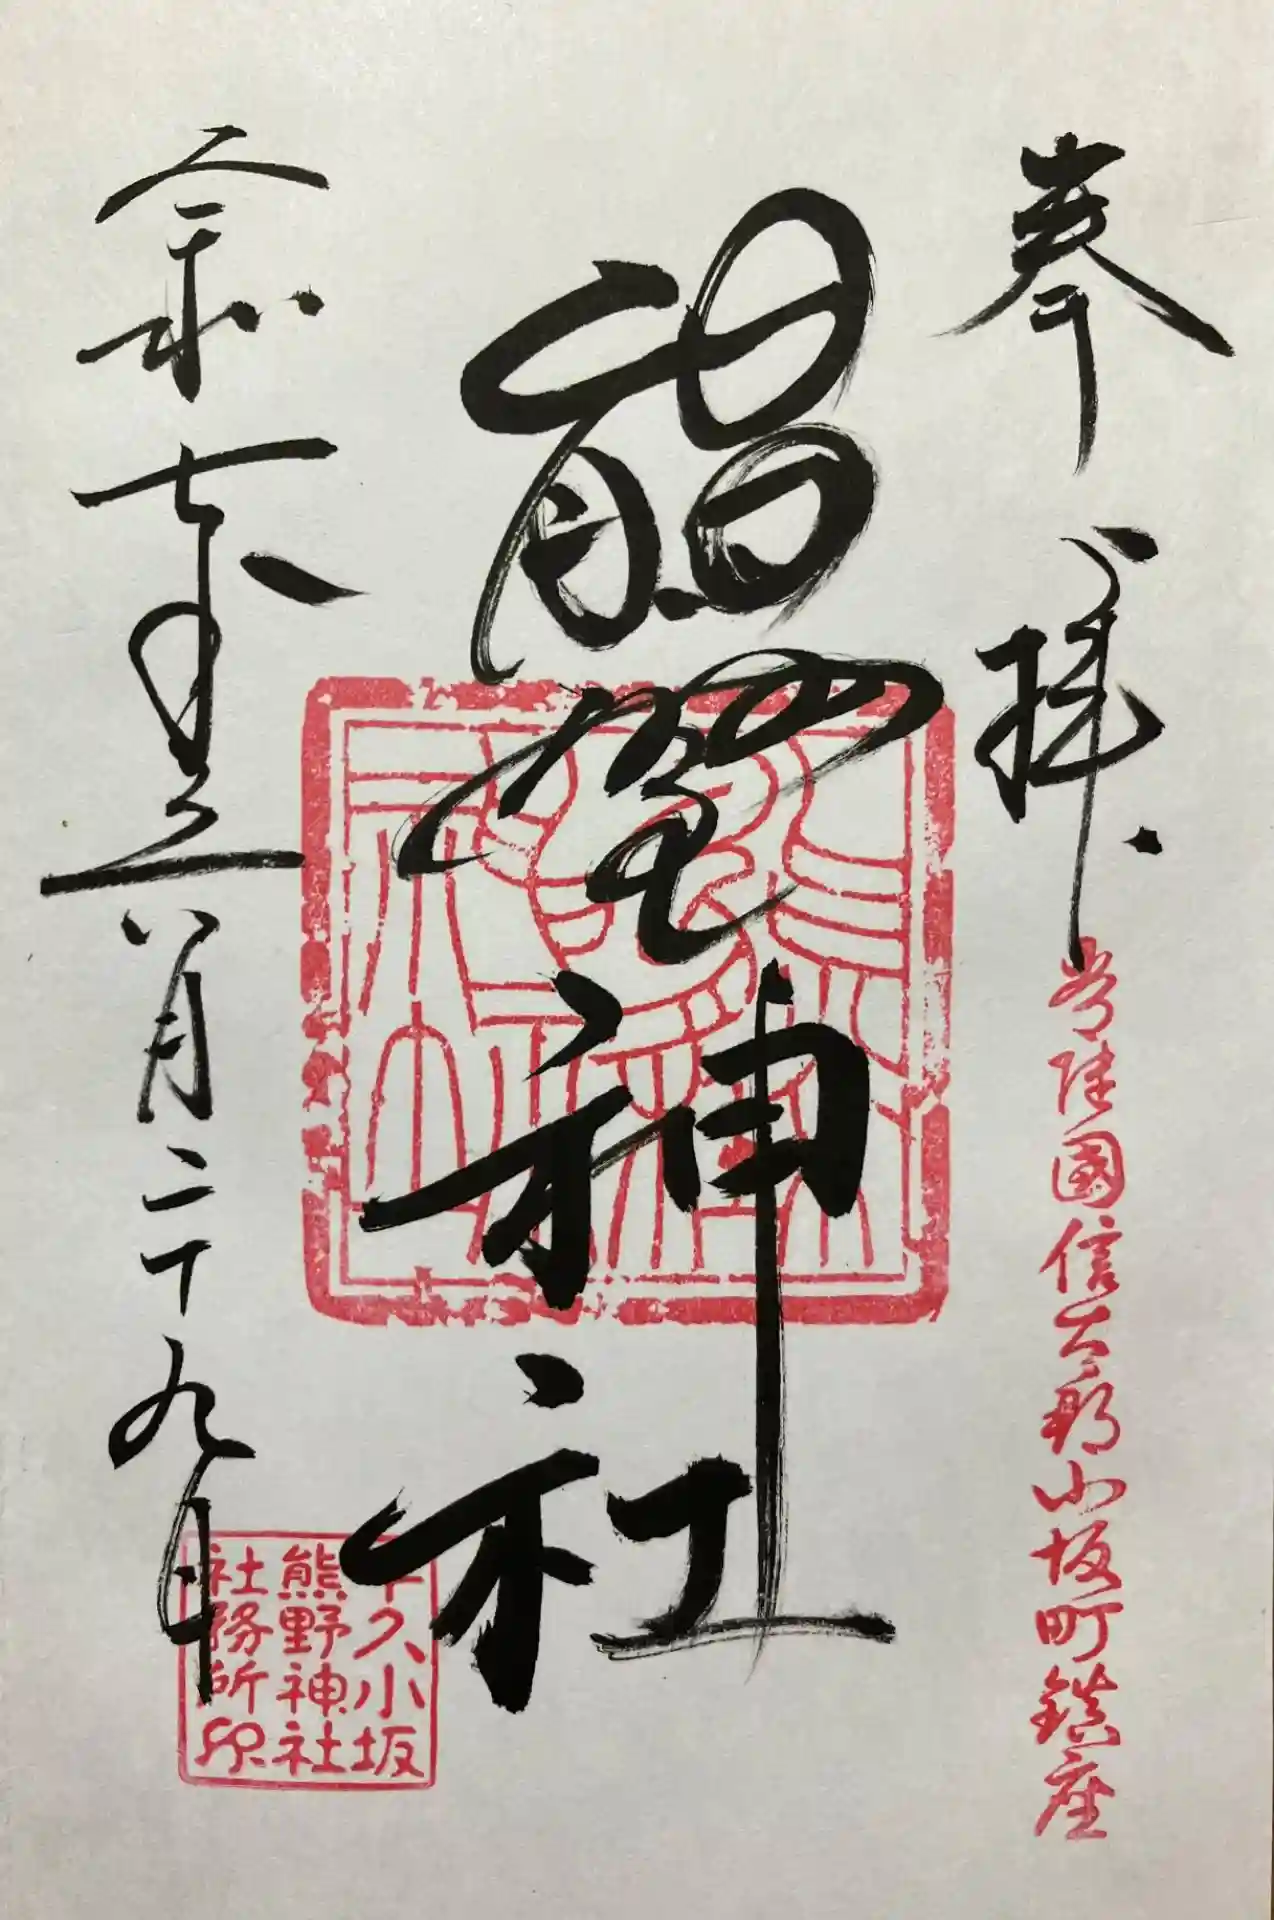 奉拝
常陸國信太郡小坂町鎮座
熊野神社
令和
八月二十九日
牛久小坂
熊野神社
社務所印